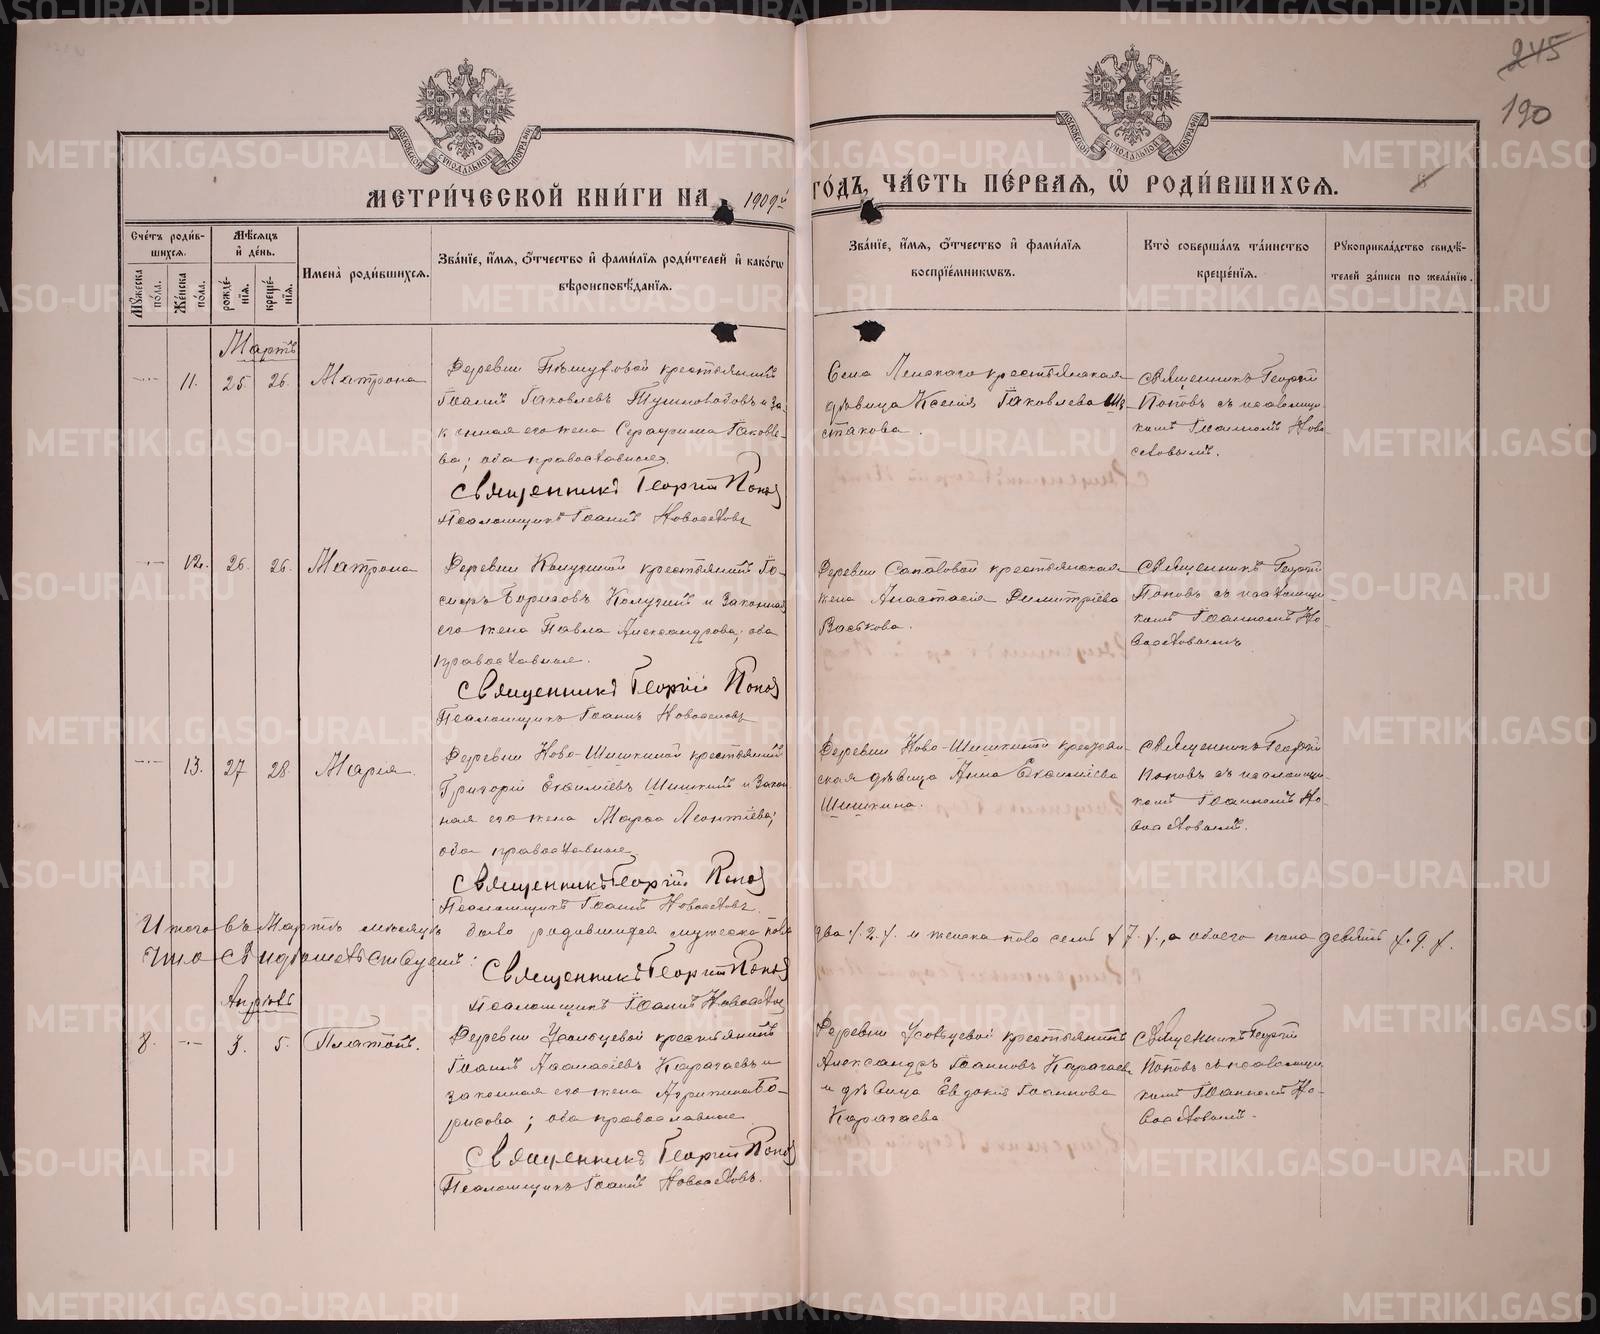 245
190
МОСКОВСКОЙ СѴНОДАЛЬНОЙ ТИПОГРАФІИ
МОСКОВСКОЙ СѴНОДАЛЬНОЙ ТИПОГРАФІИ
МЕТРИ́ЧЕСКОЙ КНИ́ГИ НА 1909й ГО́ДЪ, ЧА́СТЬ ПЕ́РВАѦ, Ѡ҆ РОДИ́ВШИХСѦ.
Сче́тъ роди́в-
шихсѧ.
Мꙋ́жеска по́ла.
Же́нска по́ла.
Мѣ́сѧцъ
и҆ де́нь.
рожде́-
нїѧ.
креще́-
нїѧ.
Имена̀ роди́вшихсѧ.
Зва́нїе, и҆́мѧ, ѻ҆́тчество и҆ фами́лїѧ роди́телей и҆ како́гѡ
вѣроисповѣ́данїѧ.
Зва́нїе, и҆́мѧ, ѻ҆́тчество и҆ фами́лїѧ
воспрїе́мникѡвъ.
Кто̀ соверша́лъ та́инство
креще́нїѧ.
Рꙋкоприкла́дство свидѣ́-
телей за́писи по жела́нїю.
Мартъ
11. 25 26. Матрона
Деревни крестьянинъ
Іоаннъ Іаковлевъ и за-
конная его жена Серафима Іаковле-
ва; оба православные.
Священникъ Георгій Поповъ
Псаломщикъ Іоаннъ Новосёловъ
Села Ленскаго крестьянская
дѣвица Ксенія Іаковлева Ше-
стакова.
Священникъ Георгій
Поповъ съ псаломщи-
комъ Іоанномъ Ново-
селовымъ.
12. 26. 26. Матрона
Деревни Калугиной крестьянинъ Іо-
сифъ Борисовъ Калугинъ и законная
его жена Павла Александрова; оба
православные.
Священникъ Георгій Поповъ
Псаломщикъ Іоаннъ Новоселовъ
Деревни Сапатовой крестьянская
жена Анастасія Димитріева
Васькова.
Священникъ Георгій
Поповъ съ псаломщи-
комъ Іоанномъ Но-
воселовымъ.
13. 27 28. Марія.
Деревни Ново-Шишкиной крестьянинъ
Григорій Евфиміевъ Шишкинъ и закон-
ная его жена Марфа Леонтіева;
оба православные
Священникъ Георгій Поповъ
Псаломщикъ Іоаннъ Новоселовъ.
Деревни Ново-Шишкиной крестьян-
ская дѣвица Анна Евфиміева
Шишкина.
Священникъ Георгій
Поповъ съ псаломщи-
комъ Іоанномъ Но-
воселовымъ.
Итого въ Мартѣ мѣсяцѣ было родившихся мужеска пола два /.2./. и женска пола семь /.7./., а обоего пола девять /.9./.
Что свидѣтельствуемъ: Священникъ Георгій Поповъ
Псаломщикъ Іоаннъ Новоселовъ
Апрѣль
8. 3. 5. Платонъ.
Деревни Усольцевой крестьянинъ
Іоаннъ Аѳанасіевъ Карагаевъ и
законная его жена Агрипина Бо-
рисова; оба православные.
Священникъ Георгій Поповъ
Псаломщикъ Іоаннъ Новоселовъ.
Деревни Усольцевой крестьянинъ
Александръ Іоанновъ Карагаевъ
и дѣвица Евдокія Іоаннова
Карагаева.
Священникъ Георгій
Поповъ съ псаломщи-
комъ Іоанномъ Но-
воселовымъ.
METRIKI.GASO-URAL.RU